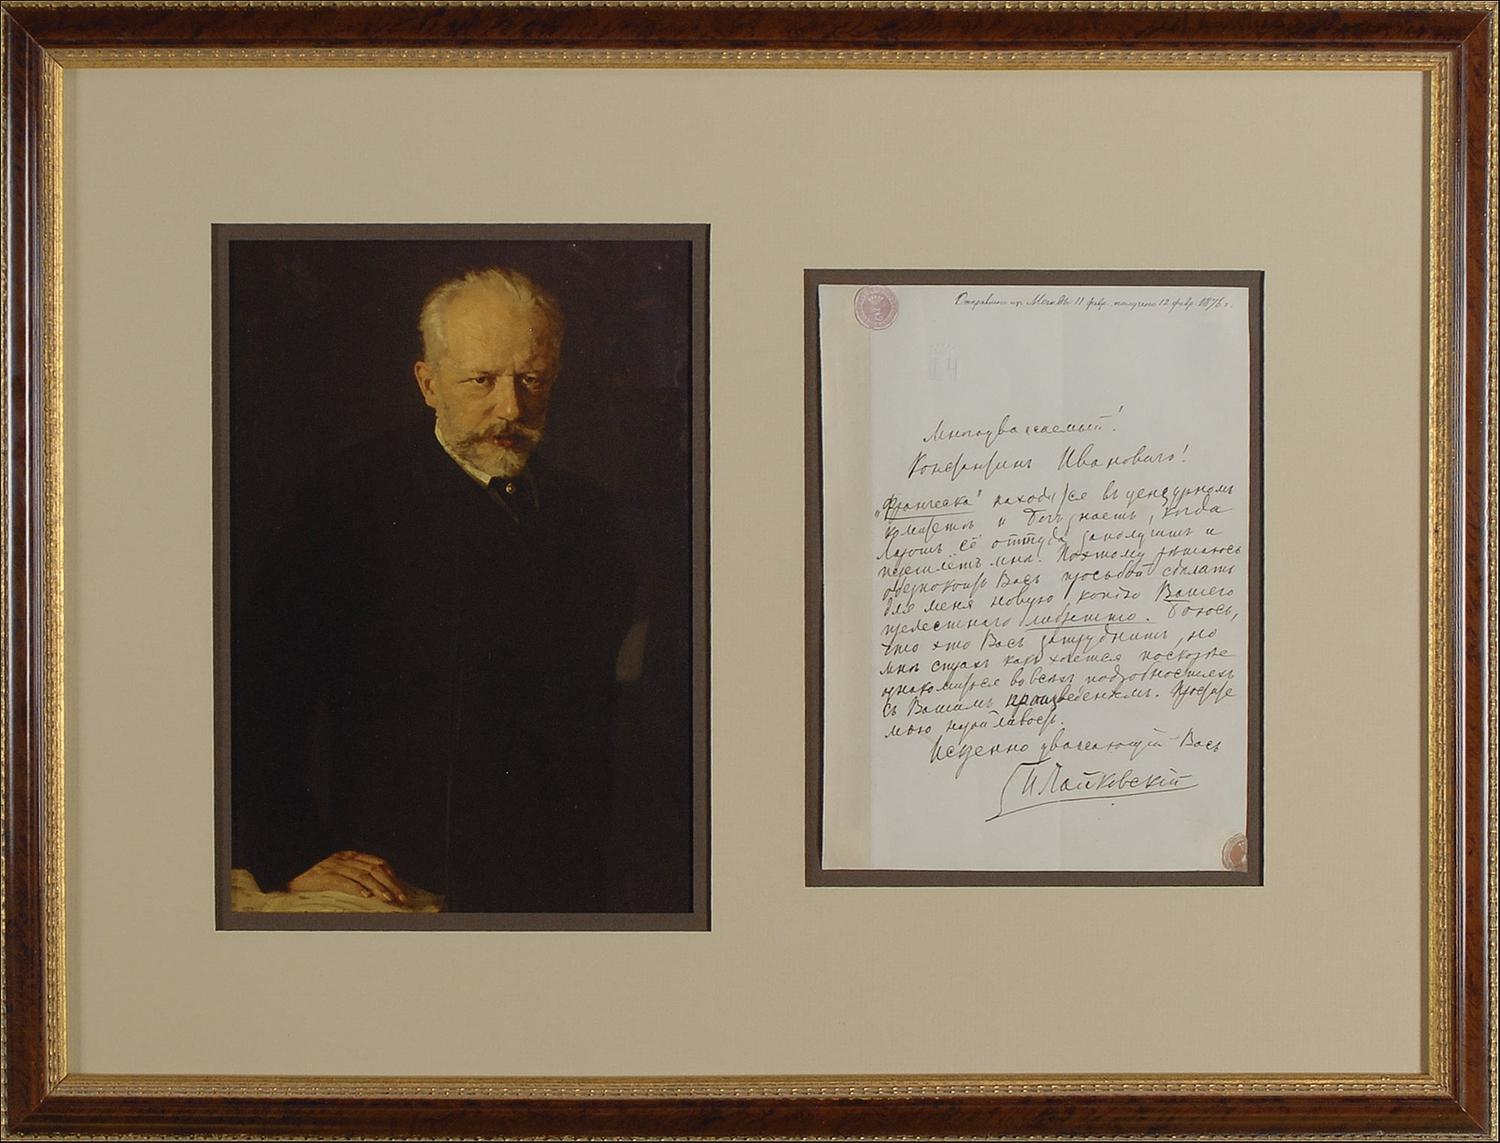 Отправлено из Москвы 11 февр. получено 12 февр. 1876 г.
Многоуважаемый!
Константинъ Ивановичъ!
„Франческа" находится въ цензурномъ
комитетѣ и Богъ знаетъ, когда
Ларошъ её оттуда заполучитъ и
перешлётъ мнѣ. Поэтому рѣшаюсь
обезпокоить Васъ просьбой сдѣлать
для меня новую копію Вашего
прелестнаго либретто. Боюсь,
что это Васъ затруднитъ, но
мнѣ страхъ какъ хочется поскорѣе
ознакомиться во всѣхъ подробностяхъ
съ Вашимъ произведеніемъ. Простите
мою назойливость.
Искренно уважающій Васъ
П Чайковскій